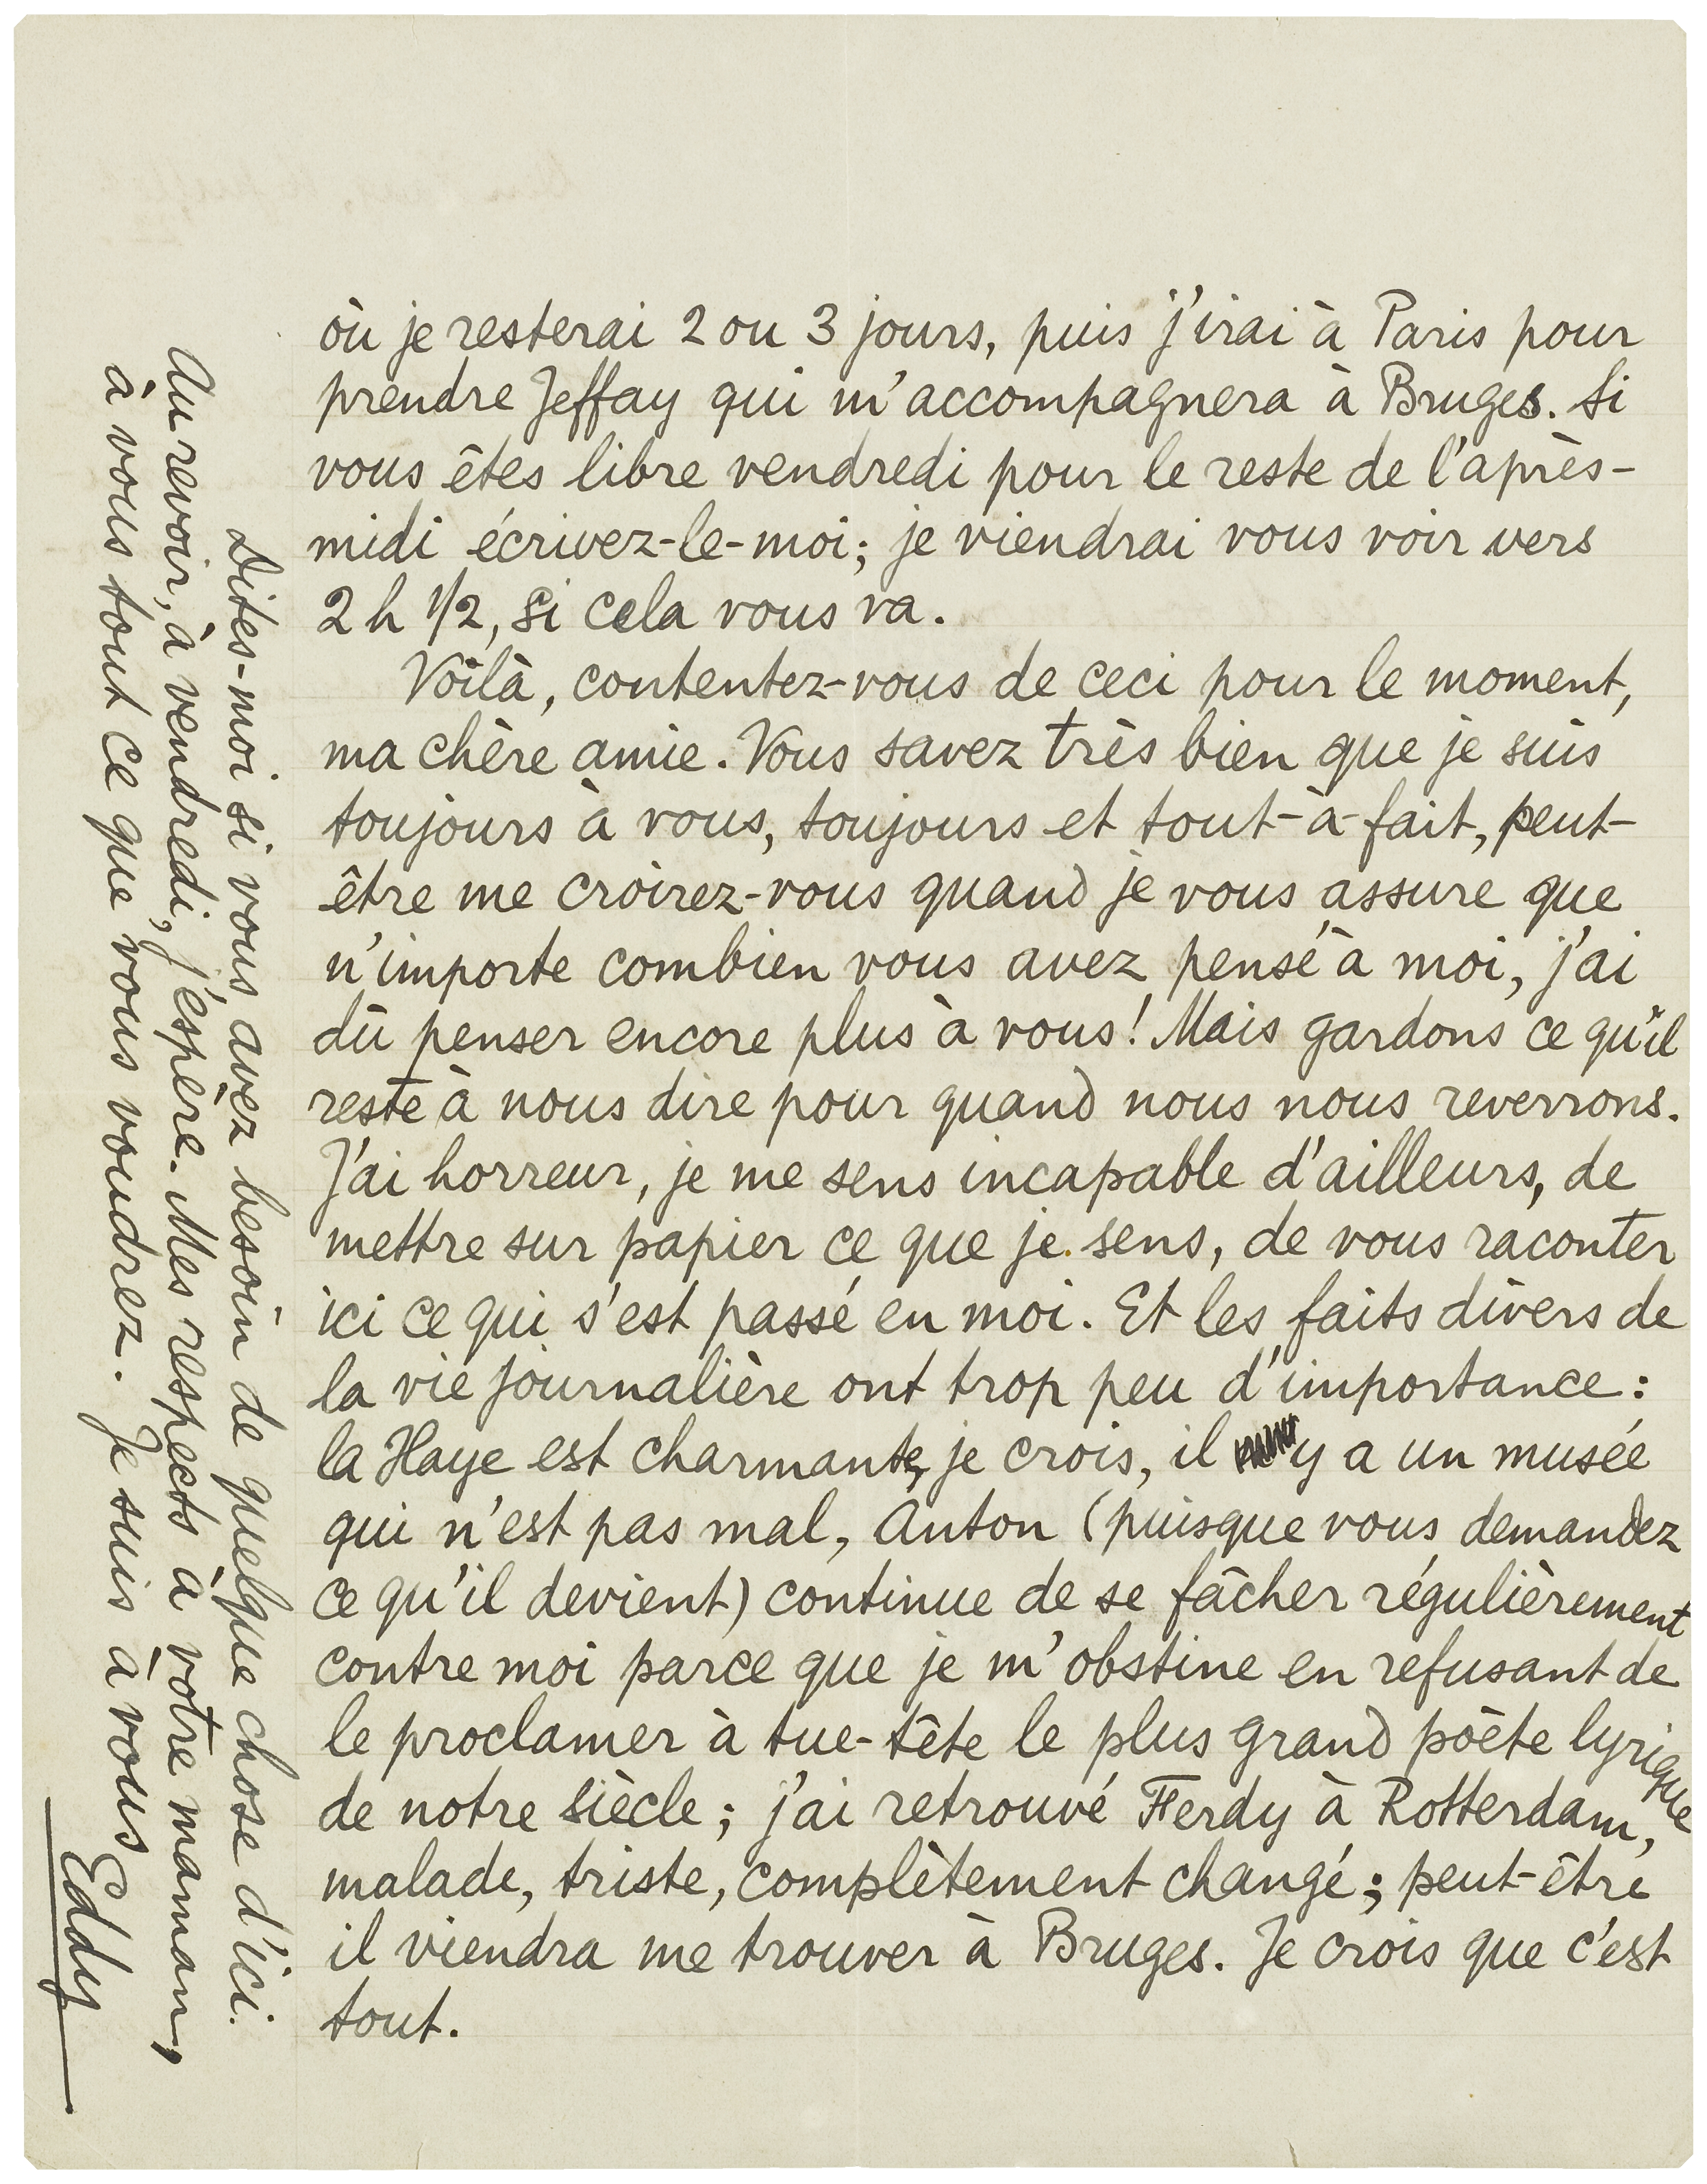 où je resterai 2 ou 3 jours, puis j'irai à Paris pour
prendre Jeffay qui m'accompagnera à Bruges. Si
vous êtes libre vendredi pour le reste de l'après-
midi écrivez-le-moi; je viendrai vous voir vers
2 h 1/2, si cela vous va.
Voilà, contentez-vous de ceci pour le moment,
ma chère amie. Vous savez très bien que je suis
toujours à vous, toujours et tout-à-fait, peut-
être me croirez-vous quand je vous assure que
n'importe combien vous avez pensé à moi, j'ai
dû penser encore plus à vous! Mais gardons ce qu'il
reste à nous dire pour quand nous nous reverrons.
J'ai horreur, je me sens incapable d'ailleurs, de
mettre sur papier ce que je sens, de vous raconter
ici ce qui s'est passé en moi. Et les faits divers de
la vie journalière ont trop peu d'importance:
la Haye est charmante, je crois, il y a un musée
qui n'est pas mal, Anton (puisque vous demandez
ce qu'il devient) continue de se fâcher régulièrement
contre moi parce que je m'obstine en refusant de
le proclamer à tue-tête le plus grand poète lyrique
de notre siècle; j'ai retrouvé Ferdy à Rotterdam,
malade, triste, complètement changé; peut-être
il viendra me trouver à Bruges. Je crois que c'est
tout.
Dites-moi si vous avez besoin de quelque chose d'ici.
Au revoir, à vendredi, j'espère. Mes respects à votre maman,
à vous tout ce que vous voudrez. Je suis à vous
Eddy